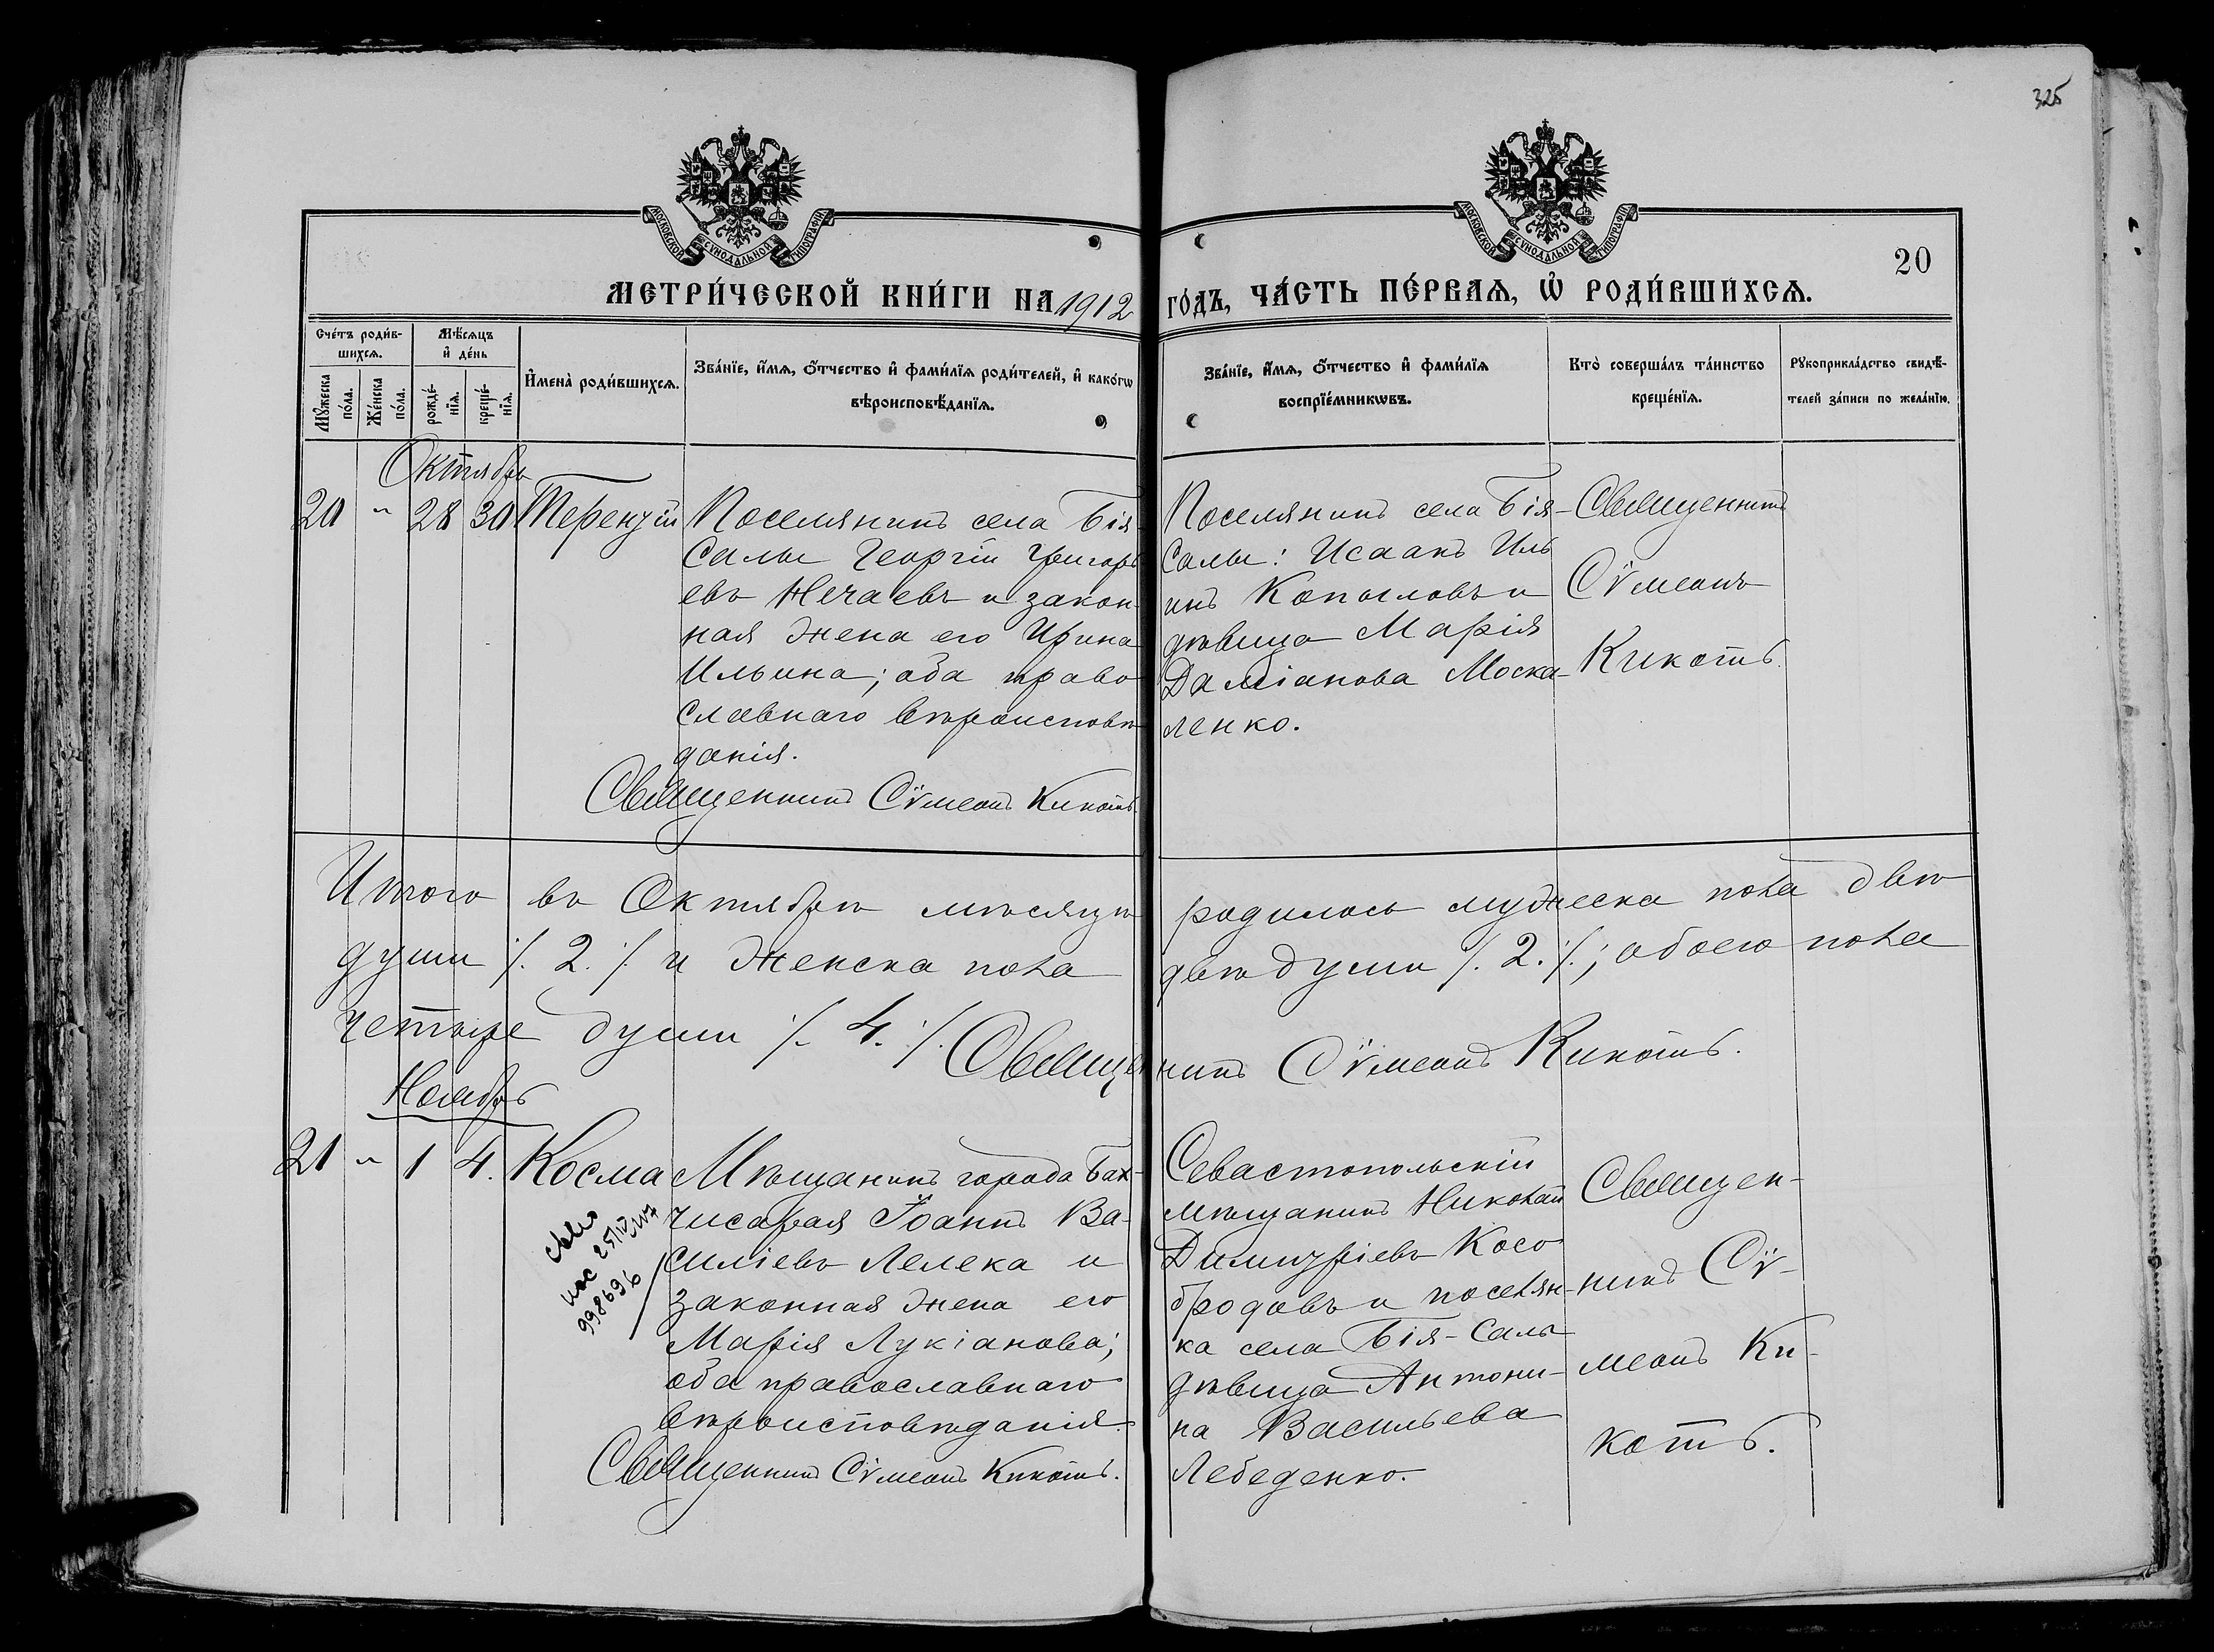 325
МОСКОВСКОЙ СѴНОДАЛЬНОЙ ТИПОГРАФІИ
МОСКОВСКОЙ СѴНОДАЛЬНОЙ ТИПОГРАФІИ
20
МЕТРИ́ЧЕСКОЙ КНИ́ГИ НА 1912 ГО́ДЪ, ЧА́СТЬ ПЕ́РВАѦ, Ѡ҆ РОДИ́ВШИХСѦ.
Сче́тъ роди́в-
шихсѧ.
Мꙋ́жеска
по́ла.
Же́нска
по́ла.
Мѣ́сѧцъ
и҆ де́нь
рожде́-
нїѧ.
креще́-
нїѧ.
И҆мена̀ роди́вшихсѧ.
Зва́нїе, и҆́мѧ, ѻ҆́тчество и҆ фами́лїѧ роди́телей, и҆ како́гѡ
вѣроисповѣ́данїѧ.
Зва́нїе, и҆́мѧ, ѻ҆́тчество и҆ фами́лїѧ
воспрїе́мникѡвъ.
Кто̀ соверша́лъ та́инство
креще́нїѧ.
Рꙋкоприкла́дство свидѣ́-
телей за́писи по жела́нїю.
Октябрь
20 " 28 30 Терентій
Поселянинъ села Бія-
Салы Георгій Григорь
евъ Нечаевъ и закон-
ная жена его Ирина
Ильина; оба право
славнаго вѣроисповѣ
данія.
Священникъ Сѵмеонъ Кикоть.
Поселянинъ села Бія-
Салы: Исаакъ Иль
инъ Копыловъ и
дѣвица Марія
Даміанова Моска-
ленко.
Священникъ
Сѵмеонъ
Кикоть.
Итого въ Октябрѣ мѣсяцѣ родилось мужеска пола двѣ
души ./. 2 ./. и женска пола двѣ души ./. 2 ./.; обоего пола
четыре души ./. 4 ./. Священникъ Сѵмеонъ Кикоть.
Ноябрь
21 " 1 4. Косма
998696
Мѣщанинъ города Бах-
чисарая Іоаннъ Ва-
силіевъ Лелека и
законная жена его
Марія Лукіанова;
оба православнаго
вѣроисповѣданія.
Священникъ Сѵмеонъ Кикоть.
Севастопольскій
мѣщанинъ Николай
Димитріевъ Косо
бродовъ и поселян-
ка села Бія-Салы
дѣвица Антони-
на Васильева
Лебеденко.
Священ-
никъ Сѵ-
меонъ Ки-
коть.